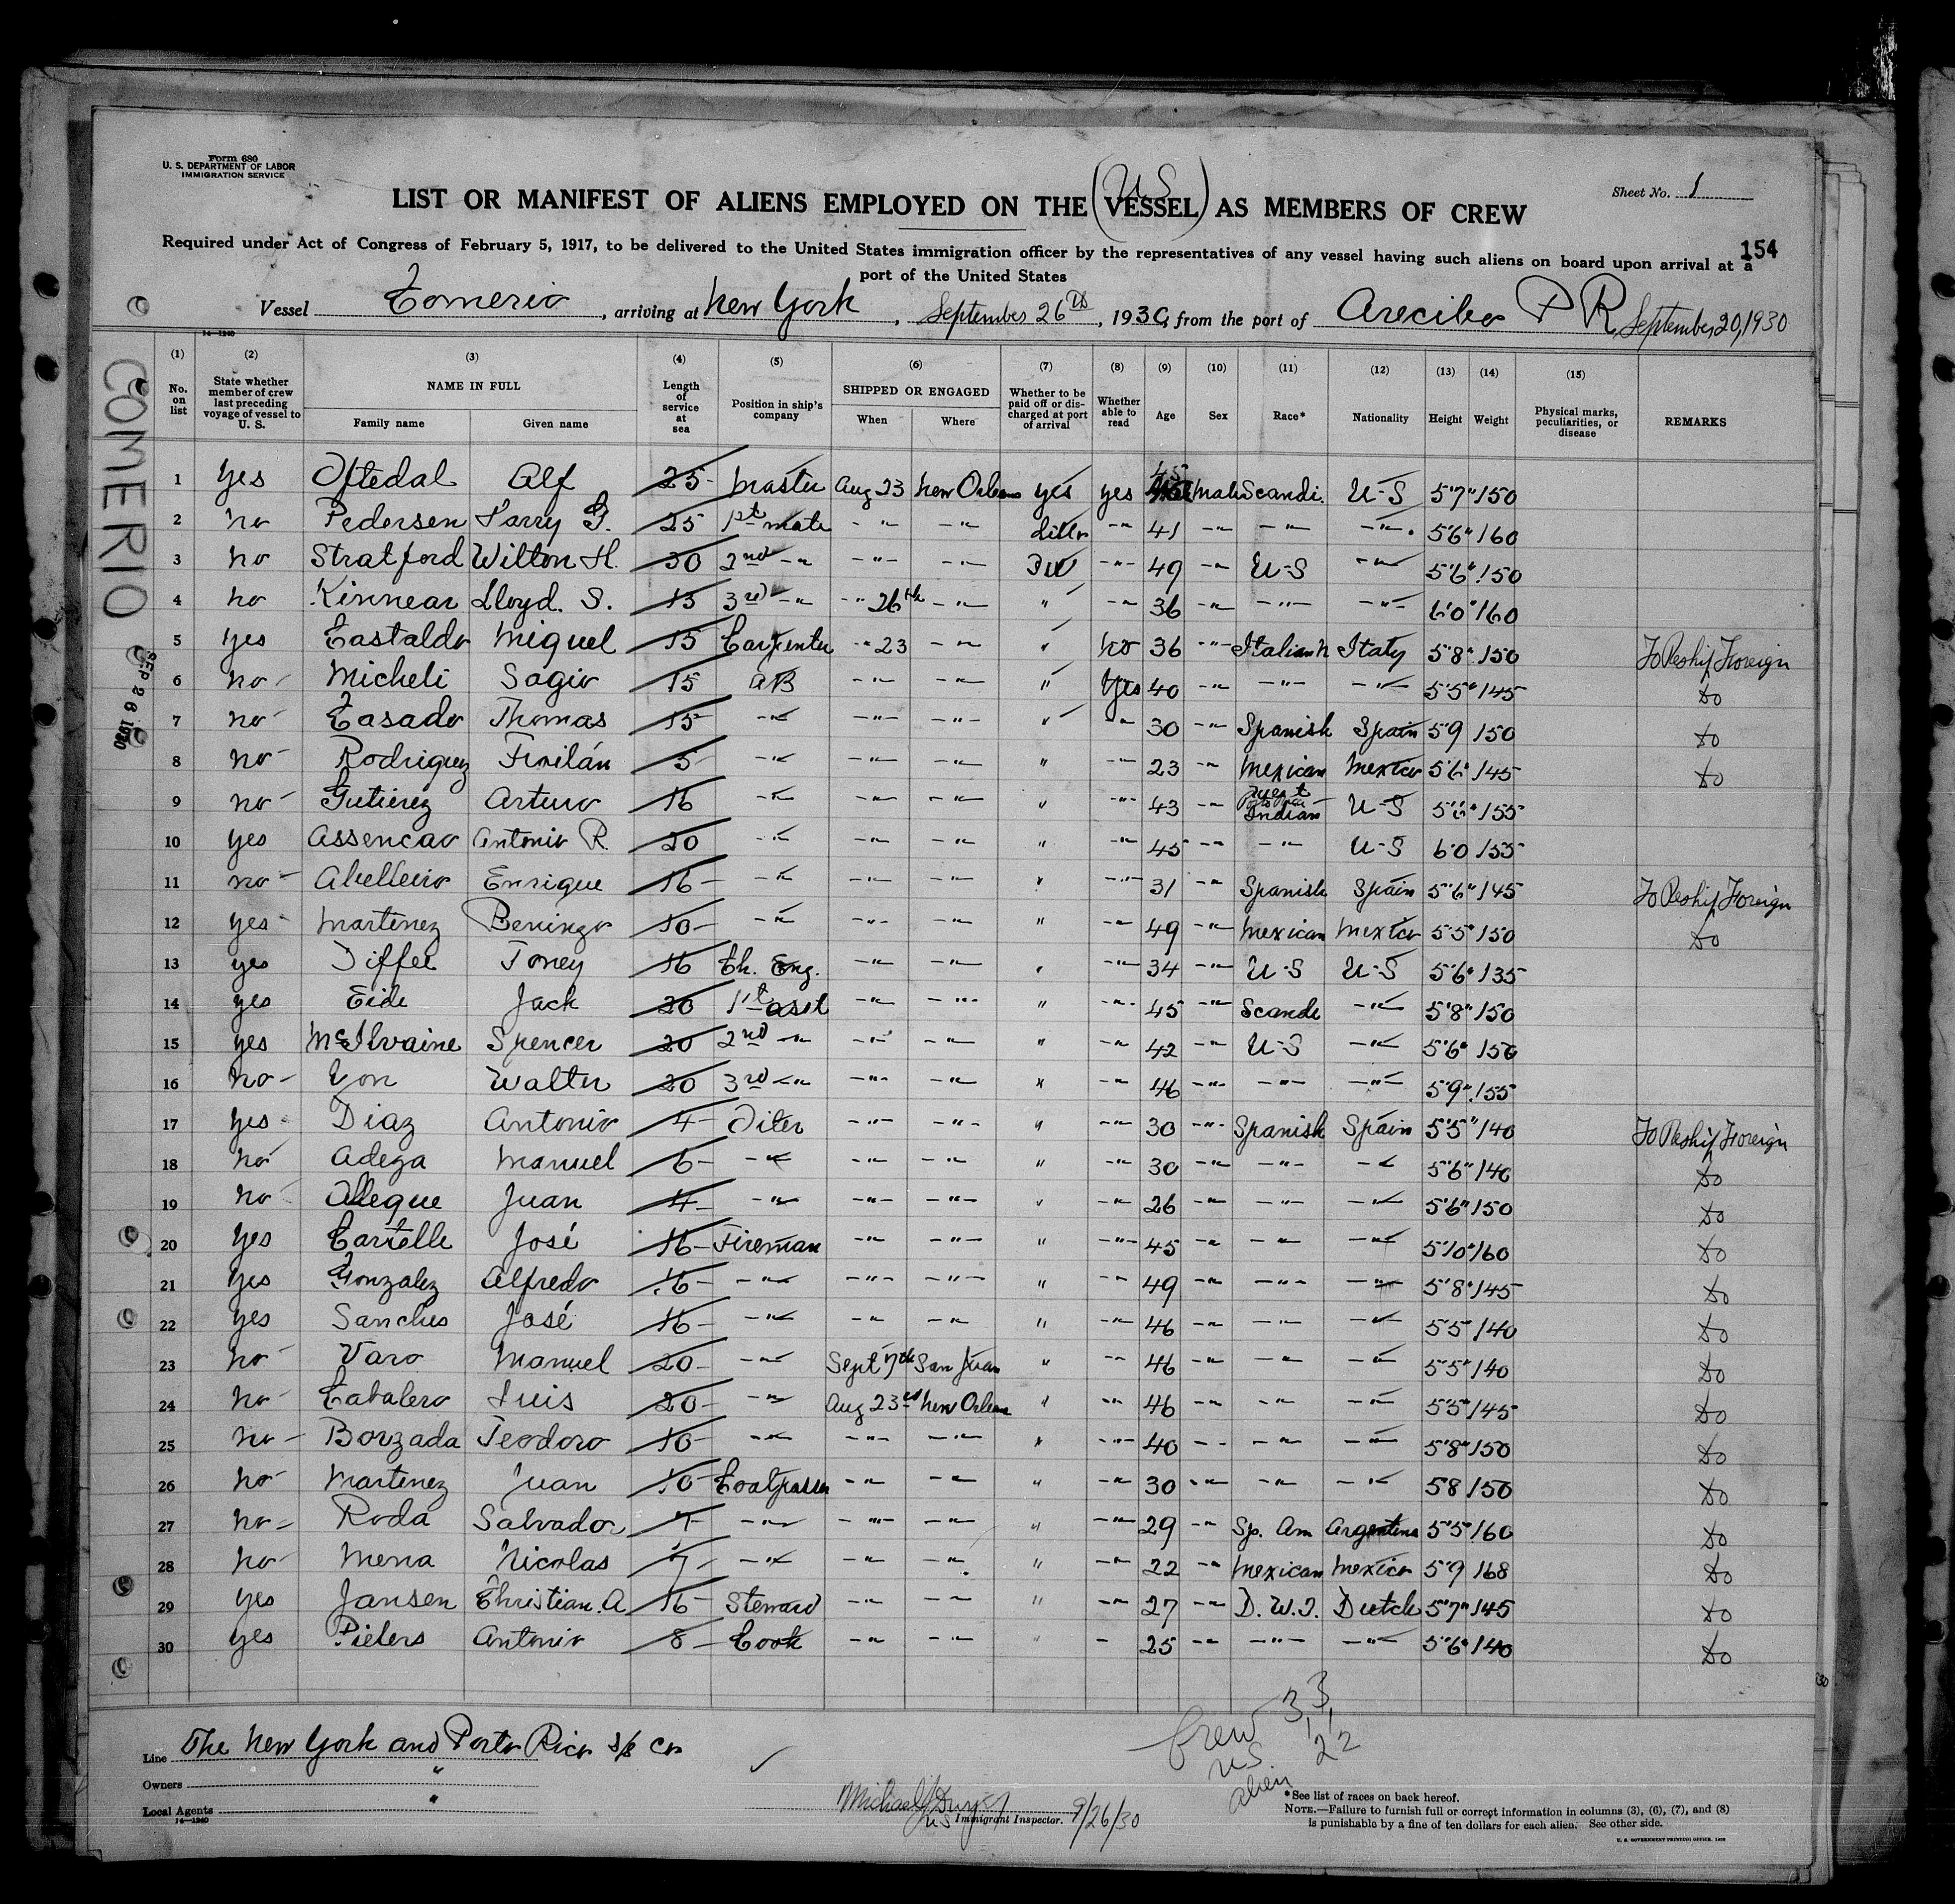 Form 680
U. S. DEPARTMENT OF LABOR
IMMIGRATION SERVICE
Sheet No. 1
U.S
LIST OR MANIFEST OF ALIENS EMPLOYED ON THE (VESSEL) AS MEMBERS OF CREW
154
Required under Act of Congress of February 5, 1917, to be delivered to the United States immigration officer by the representatives of any vessel having such aliens on board upon arrival at a
port of the United States
Vessel Comerio, arriving at New York, September 26th, 1930, from the port of Arecibo P R September 20, 1930
COMERIO
SEP 26 1930
14—1240
(1) (2) (3) (4) (5) (6) (7) (8) (9) (10) (11) (12) (13) (14) (15)
No. on list | State whether member of crew last preceding voyage of vessel to U. S. | NAME IN FULL Family name Given name | Length of service at sea | Position in ship's company | SHIPPED OR ENGAGED When Where | Whether to be paid off or discharged at port of arrival | Whether able to read | Age | Sex | Race* | Nationality | Height | Weight | Physical marks, peculiarities, or disease | REMARKS
1 Yes Oftedal Alf 25 Master Aug 23 New Orleans yes yes 45 Male Scandi. U-S 5'7" 150
2 no Pedersen Harry G. 25 1st mate -"- -"- ditto -"- 41 -"- -"- -"- 5'6" 160
3 no Stratford Wilton H. 30 2nd -"- -"- -"- DO -"- 49 -"- U-S -"- 5'6" 150
4 no Kinnear Lloyd. S. 15 3rd -"- -"- 26th -"- " -"- 36 -"- -"- -"- 6'0" 160
5 yes Castaldo Miguel 15 Carpenter -"- 23 -"- " no 36 -"- Italian N Italy 5'8" 150 To Reship Foreign
6 no Micheli Sagio 15 AB -"- -"- " Yes 40 -"- -"- -"- 5'5" 145 Do
7 no Casado Thomas 15 -"- -"- -"- " -"- 30 -"- Spanish Spain 5'9 150 Do
8 no Rodriguez Froilán 5 -"- -"- -"- " -"- 23 -"- Mexican Mexico 5'6" 145 Do
9 no Gutierez Arturo 16 -"- -"- -"- " -"- 43 -"- West Indian U-S 5'6" 155
10 yes Assencao Antonio R. 20 -"- -"- -"- " -"- 45 -"- -"- U-S 6'0 155
11 no Abelleiro Enrique 16 -"- -"- -"- " -"- 31 -"- Spanish Spain 5'6" 145 To Reship Foreign
12 yes Martinez Beningo 10 -"- -"- -"- " -"- 49 -"- Mexican Mexico 5'5" 150 Do
13 yes Diffee Toney 16 Ch. Eng. -"- -"- " -"- 34 -"- U-S U-S 5'6" 135
14 yes Eide Jack 20 1st asst -"- -"- " -"- 45 -"- Scande -"- 5'8" 150
15 yes McIlvaine Spencer 20 2nd -"- -"- -"- " -"- 42 -"- U-S -"- 5'6" 150
16 no Yon Walter 20 3rd -"- -"- -"- " -"- 46 -"- -"- -"- 5'9" 155
17 yes Diaz Antonio 4 Oiler -"- -"- " -"- 30 -"- Spanish Spain 5'5" 140 To Reship Foreign
18 no Adega Manuel 6 -"- -"- -"- " -"- 30 -"- -"- -"- 5'6" 140 Do
19 no Allegue Juan 4 -"- -"- -"- " -"- 26 -"- -"- -"- 5'6" 150 Do
20 yes Cartelle José 16 Fireman -"- -"- " -"- 45 -"- -"- -"- 5'10" 160 Do
21 yes Gonzalez Alfredo 16 -"- -"- -"- " -"- 49 -"- -"- -"- 5'8" 145 Do
22 yes Sanches José 16 -"- -"- -"- " -"- 46 -"- -"- -"- 5'5" 140 Do
23 no Varo Manuel 20 -"- Sept 7th San Juan " -"- 46 -"- -"- -"- 5'5" 140 Do
24 no Cabalero Luis 20 -"- Aug 23rd New Orleans " -"- 46 -"- -"- -"- 5'5" 145 Do
25 no Borzada Teodoro 10 -"- -"- -"- " -"- 40 -"- -"- -"- 5'8" 150 Do
26 no Martinez Juan 10 Coalpasser -"- -"- " -"- 30 -"- -"- -"- 58 150 Do
27 no Roda Salvador 7 -"- -"- -"- " -"- 29 -"- Sp. Am Argentina 5'5" 160 Do
28 no Mena Nicolas 7 -"- -"- -"- " -"- 22 -"- Mexican Mexico 5'9 168 Do
29 yes Jansen Christian. A 16 Steward -"- -"- " -"- 27 -"- D. W. I. Dutch 5'7" 145 Do
30 yes Pieters Antonio 8 Cook -"- -"- " - 25 -"- -"- -"- 5'6" 140 Do
Crew 33
US 11
alien 22
Line The New York and Porto Rico S/S Co
Owners "
Local Agents "
14—1240
Immigrant Inspector. 9/26/30
*See list of races on back hereof.
NOTE.—Failure to furnish full or correct information in columns (3), (6), (7), and (8)
is punishable by a fine of ten dollars for each alien. See other side.
U. S. GOVERNMENT PRINTING OFFICE